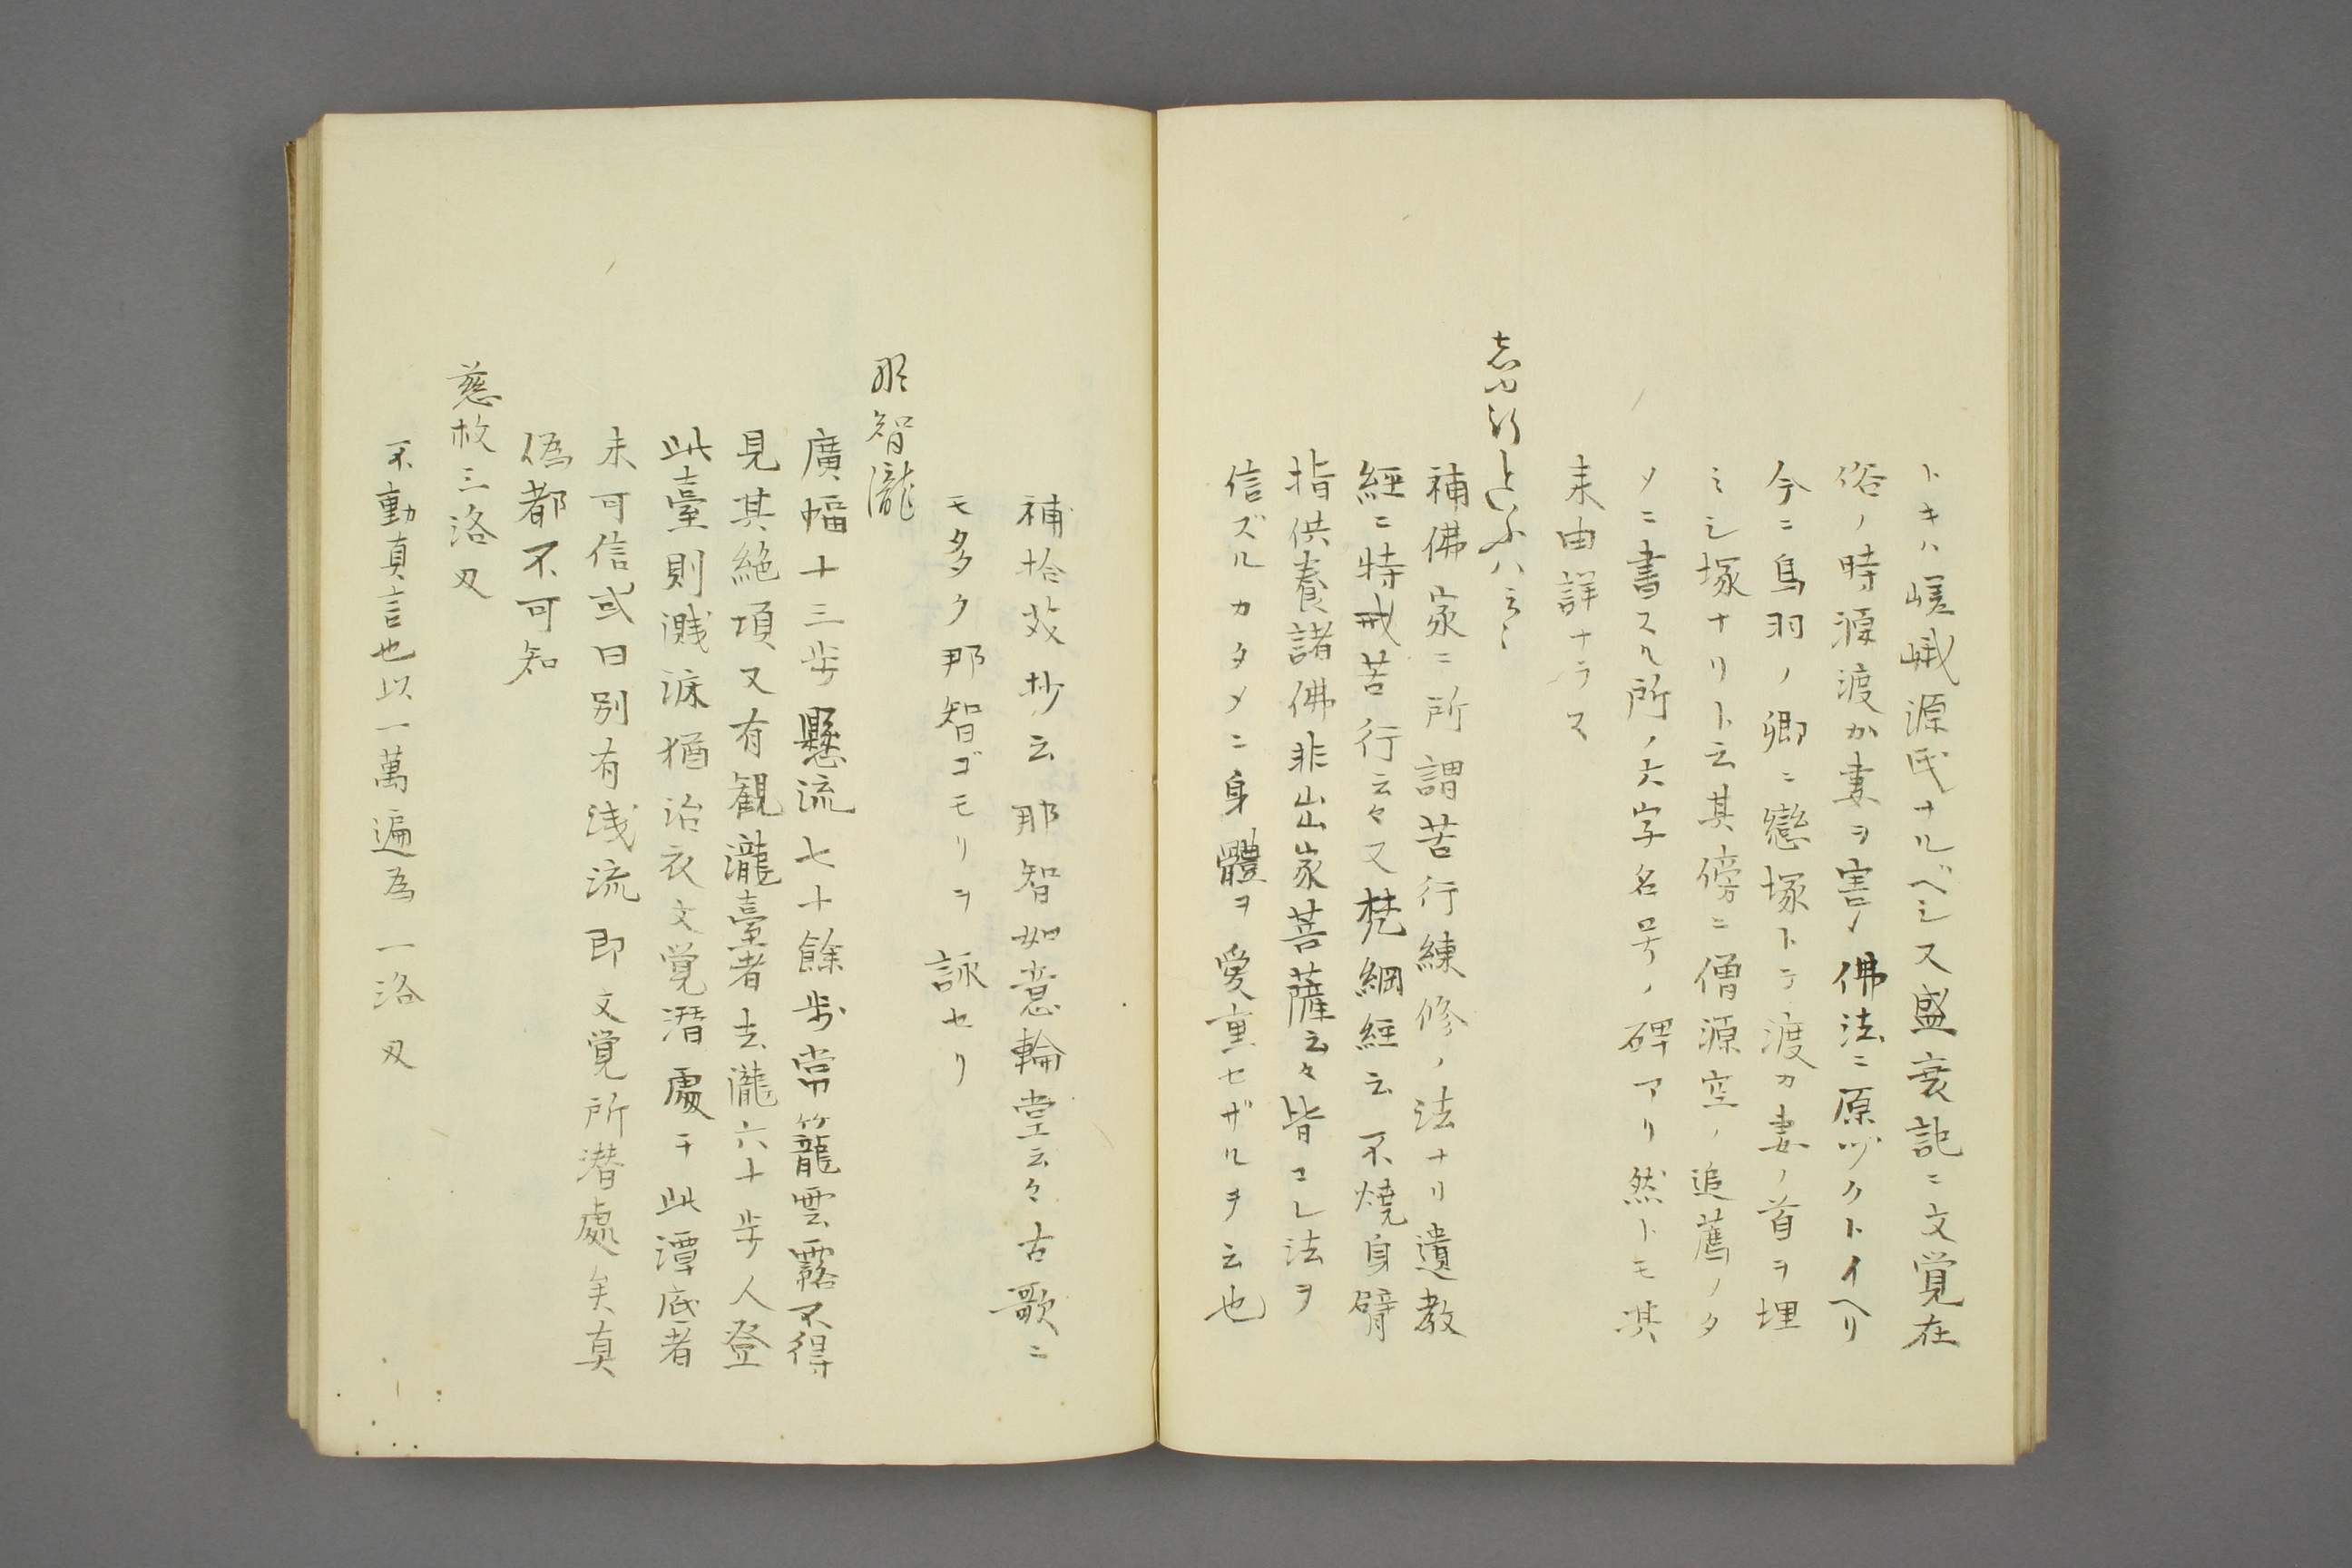 トキハ嵯峨源氏ナルベシ又盛衰記ニ文覚在
俗ノ時源渡か妻ヲ害ノ佛法ニ原ヅクトイヘリ
今ニ鳥羽ノ郷ニ戀塚トテ渡カ妻ノ首ヲ埋
ミシ塚ナリト云其傍ニ僧源空ノ追薦ノタ
メニ書スル所ノ六字名号ノ碑アリ然トモ其
来由詳ナラス
といふハ
補佛家ニ所謂苦行練修ノ法ナリ遺教
經ニ特戒苦行云々又梵網經云不燒身臂
指供養諸佛非出家菩薩云々皆コレ法ヲ
信ズルカタメニ身體ヲ愛重セザルヲ云也
補拾芥抄云那智如意輪堂云々古歌ニ
モ多ク那智ゴモリヲ詠セリ
那智瀧
廣幅十三歩懸流七十餘歩常籠雲霧不得
見其絶頂又有観瀧臺者去瀧六十歩人登
此臺則濺沫猶沾衣文覚潛處于此潭底者
未可信或曰別有浅流即文覚所潜處矣真
偽都不可知
慈救三洛叉
不動真言也以一萬遍為一洛叉